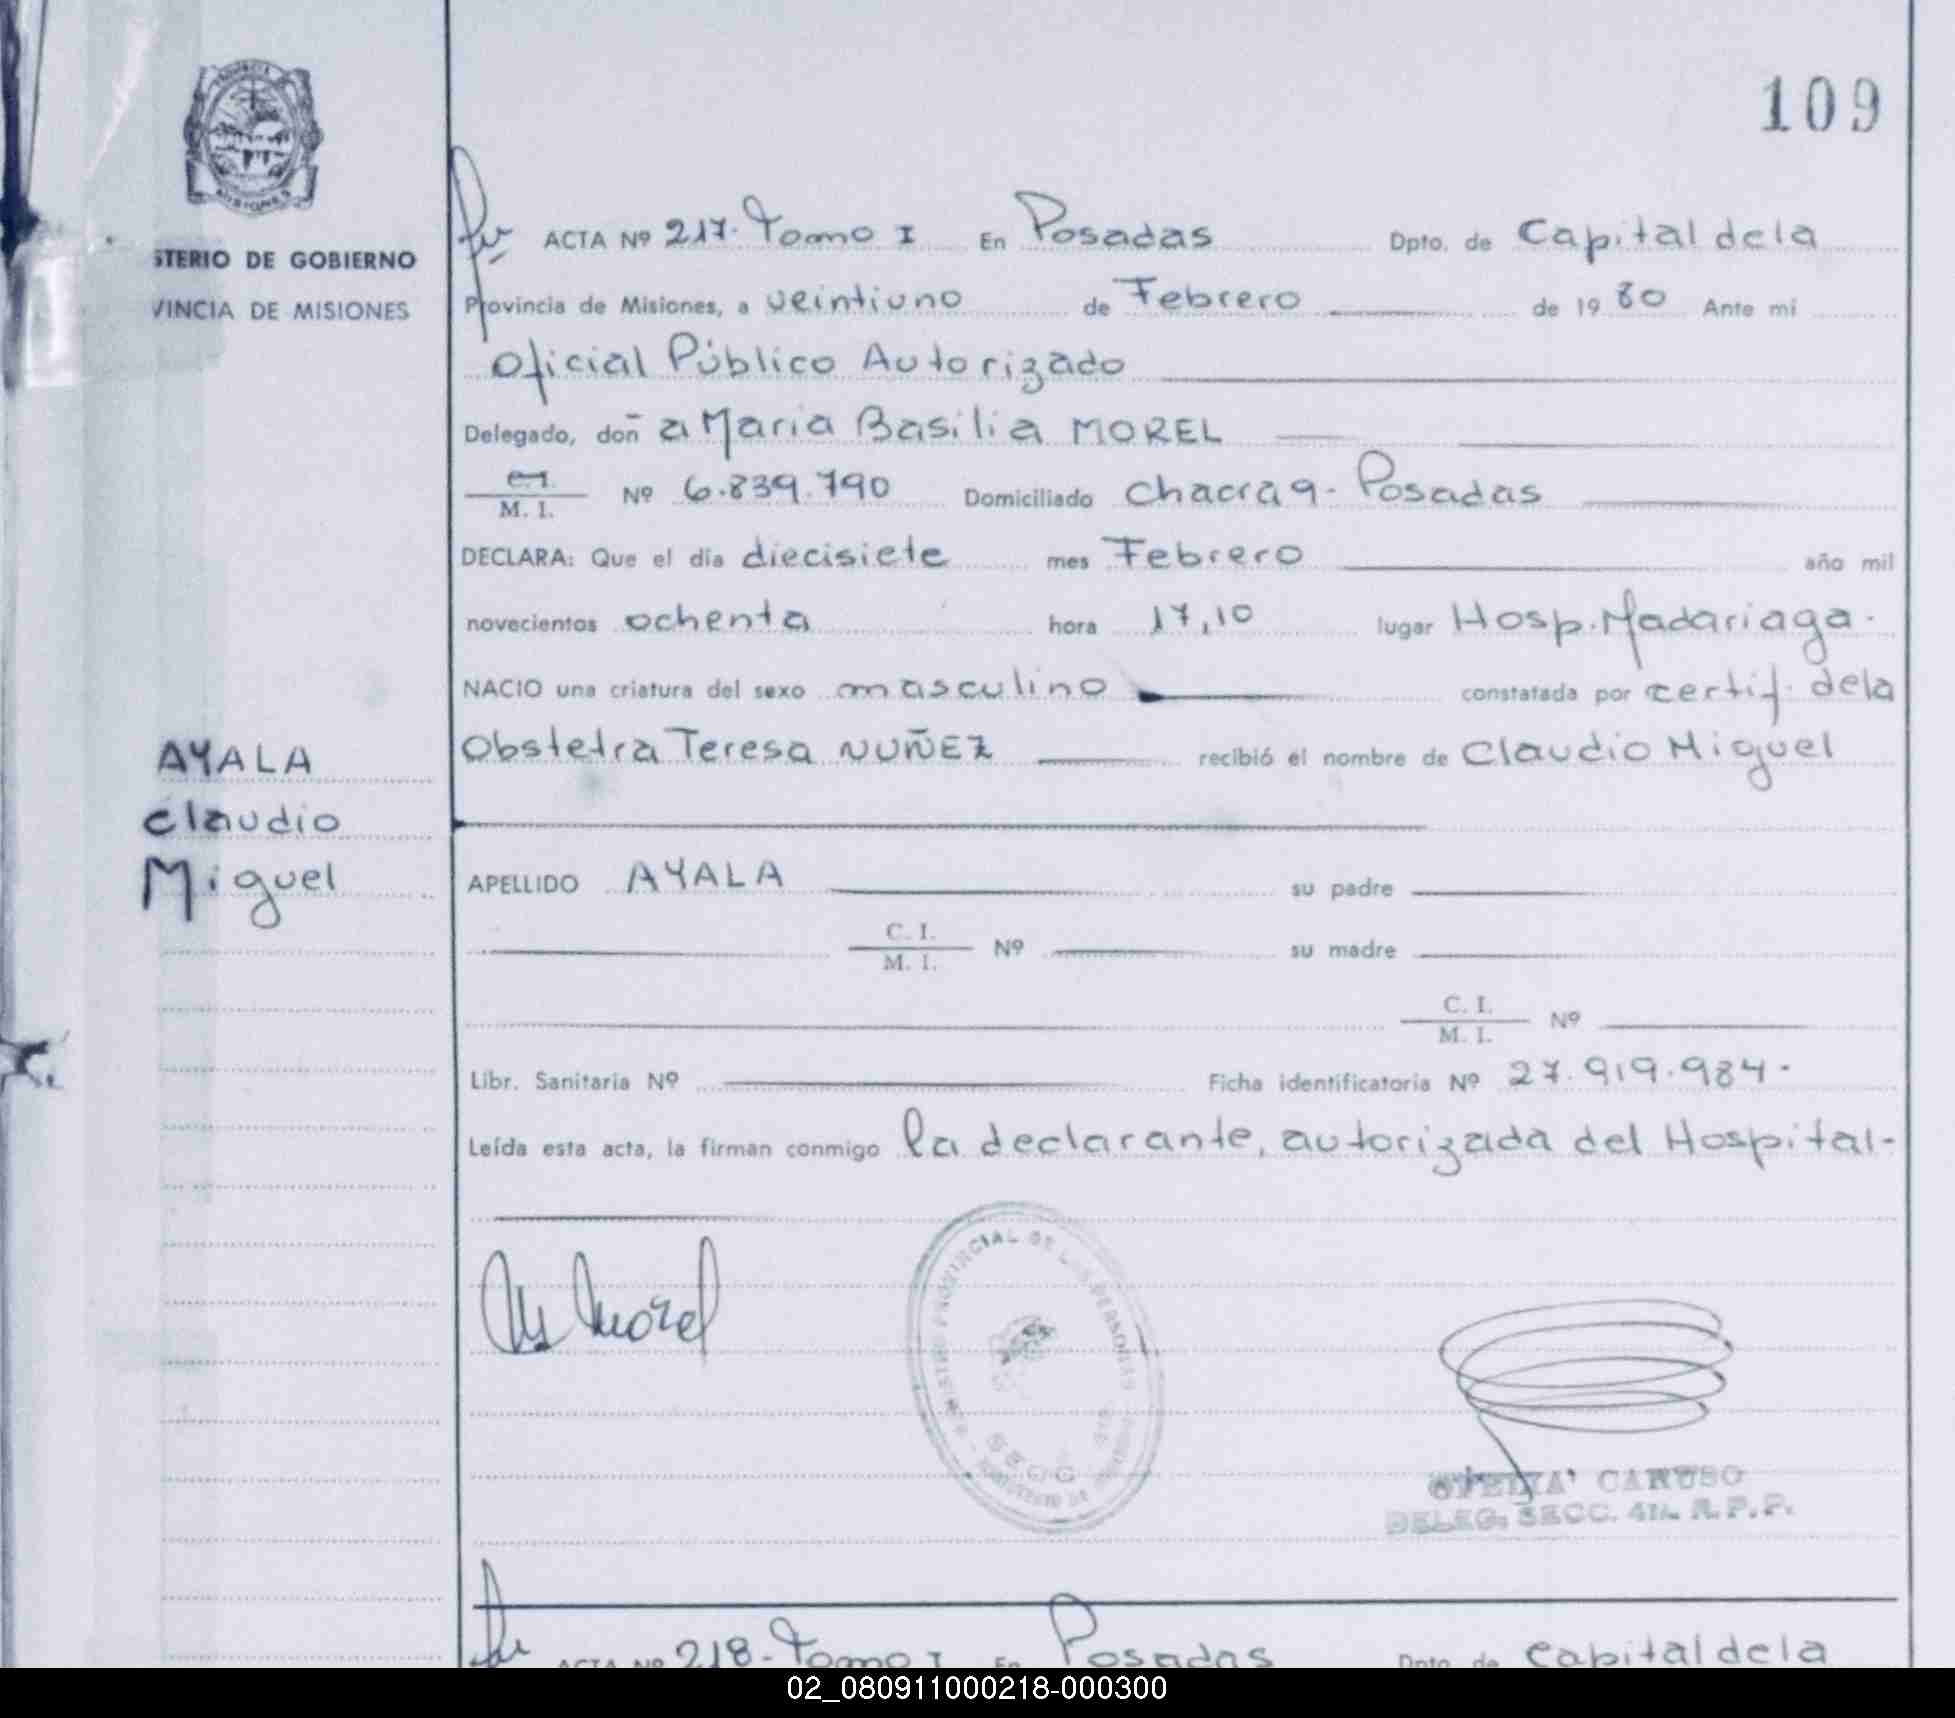 109
ACTA Nº 217. Tomo I En Posadas Dpto. de Capital de la
STERIO DE GOBIERNO
VINCIA DE MISIONES
Provincia de Misiones, a veintiuno de Febrero de 19 80 Ante mi
Oficial Público Autorizado
Delegado, doñ a Maria Basilia MOREL
C.I.
M. I. Nº 6.839.790 Domiciliado Chacra 9 - Posadas
DECLARA: Que el día diecisiete mes Febrero año mil
novecientos ochenta hora 17,10 lugar Hosp. Madariaga.
NACIO una criatura del sexo masculino constatada por certif. de la
Obstetra Teresa NUÑEZ recibió el nombre de Claudio Miguel
AYALA
Claudio
Miguel
APELLIDO AYALA su padre
C. I.
M. I. Nº su madre
C. I.
M. I. Nº
Libr. Sanitaria Nº Ficha identificatoria Nº 27.919.984.
Leída esta acta, la firman conmigo la declarante, autorizada del Hospital-
Morel
PROVINCIAL DE LAS PERSONAS
OFELIA CARUSO
DELEG. SECC. 4ta. R.P.P.
ACTA Nº 218- Tomo I En Posadas Dpto. de Capital de la
02_080911000218-000300